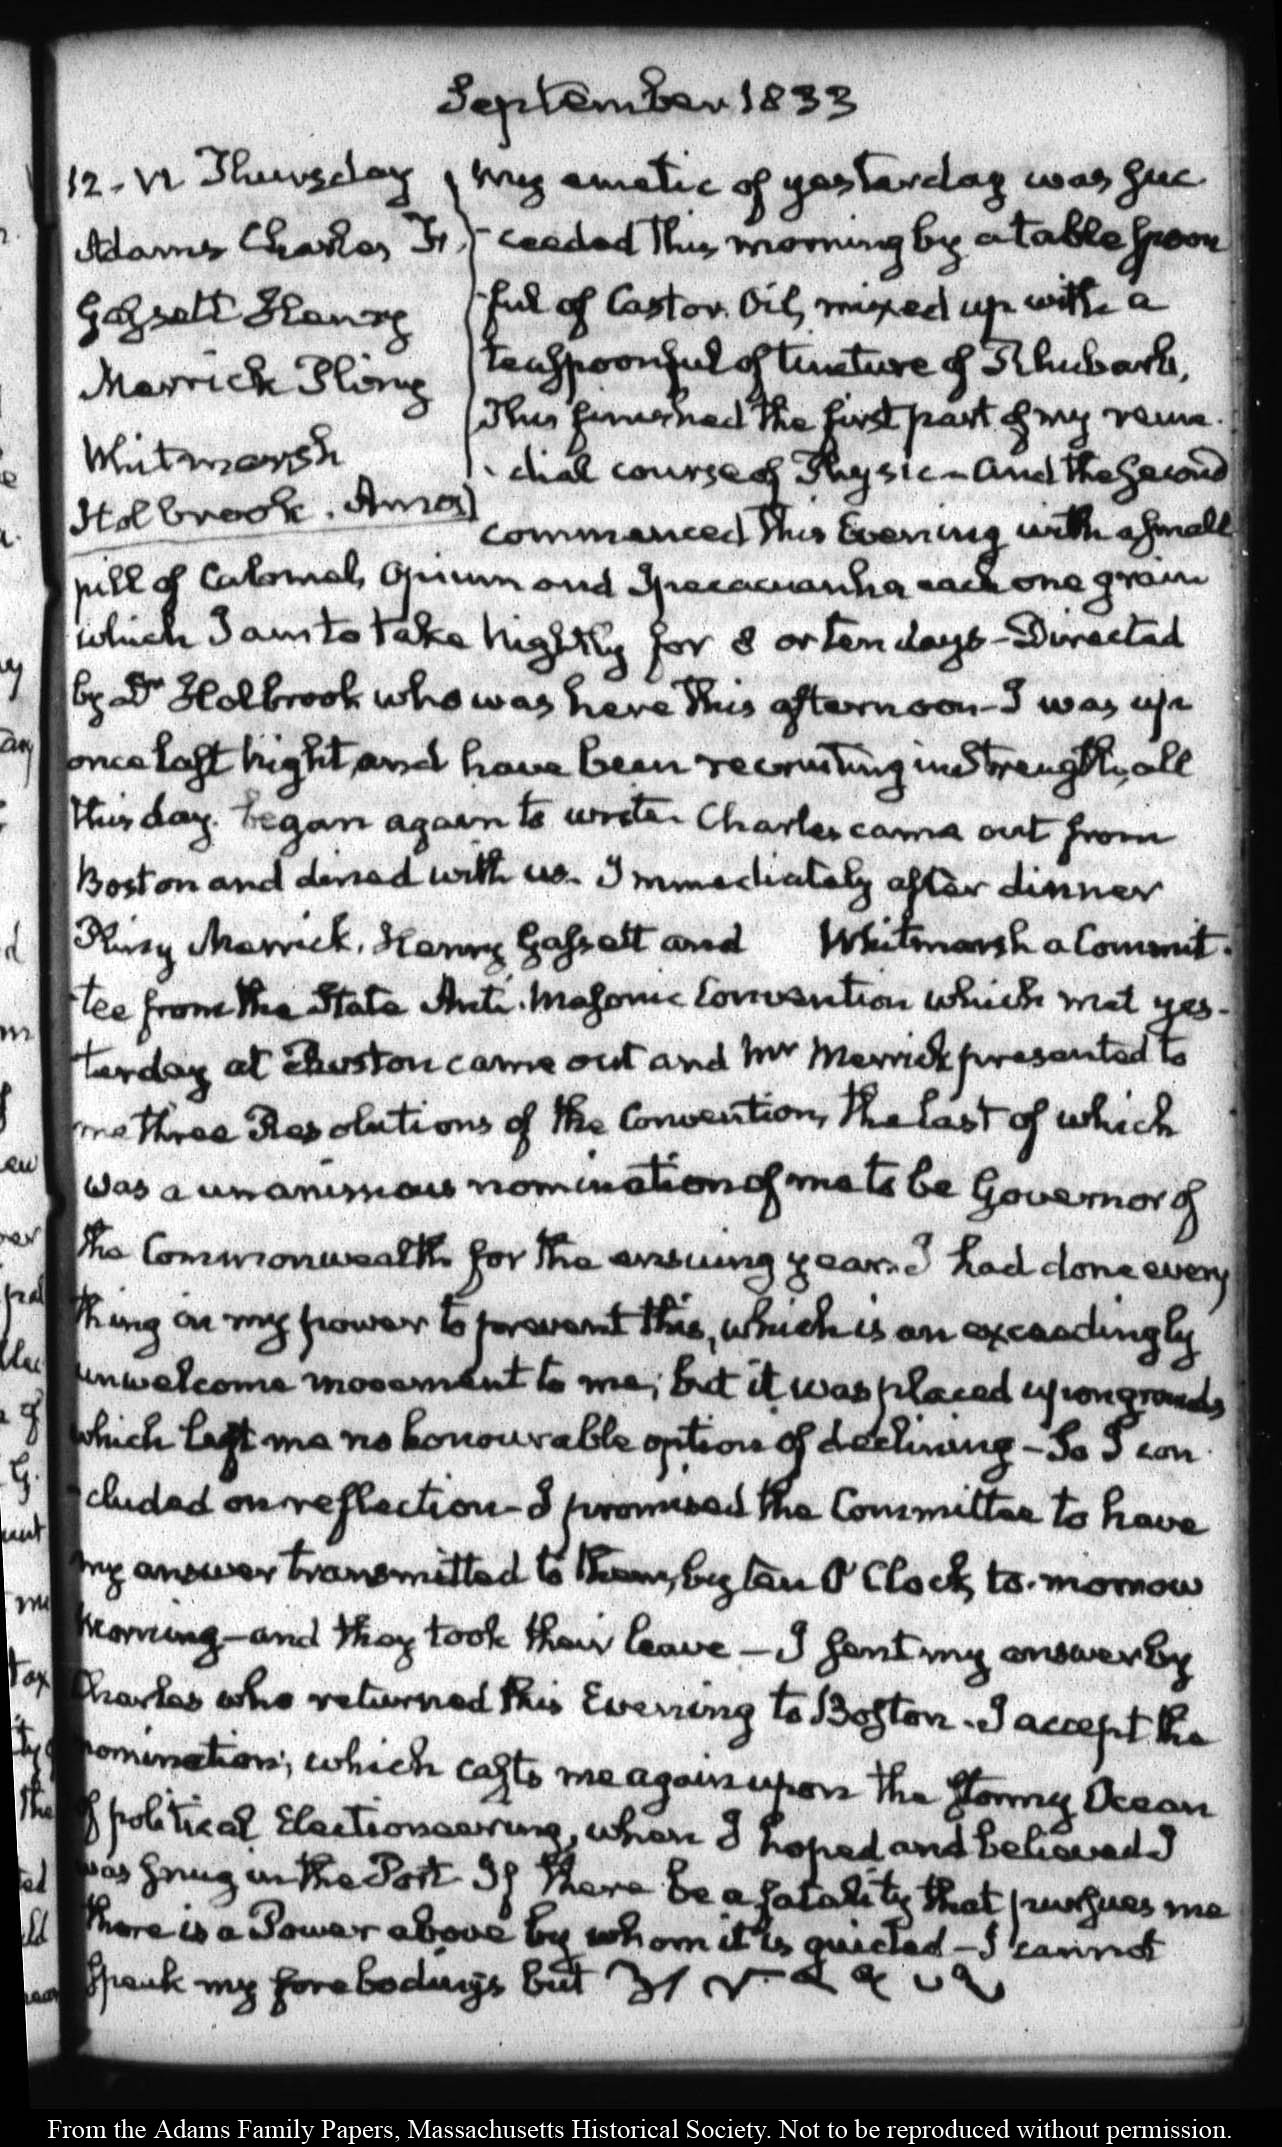 September 1833
12. VI. Thursday
Adams Charles Fr.
Gassett Henry
Merrick Pliny
Whitmarsh
Holbrook. Amos
My emetic of yesterday was suc-
ceeded this morning by a table spoon
ful of Castor Oil, mixed up with a
teaspoonful of tincture of Rhubarb,
This finished the first part of my reme-
dial course of Physic – and the second
commenced this Evening with a small
pill of Calomel, Opium and Ipecacuanha each one grain
which I am to take nightly for 8 or ten days – Directed
by Dr Holbrook who was here this afternoon – I was up
once last Night, and have been recruiting in Strength, all
this day. began again to write. Charles came out from
Boston and dined with us. Immediately after dinner
Pliny Merrick, Henry Gassett and Whitmarsh a Commit-
tee from the State Anti-Masonic Convention which met yes-
terday at Boston came out and Mr Merrick presented to
me three Resolutions of the Convention, the last of which
was a unanimous nomination of me to be Governor of
the Commonwealth for the ensuing year. I had done every
thing in my power to prevent this, which is an exceedingly
unwelcome movement to me; but it was placed upon grounds
which left me no honourable option of declining – So I con-
cluded on reflection – I promised the Committee to have
my answer transmitted to them, by ten O'Clock, to-morrow
morning – and they took their leave – I sent my answer by
Charles who returned this Evening to Boston. I accept the
nomination; which casts me again upon the stormy Ocean
of political Electioneering, when I hoped and believed I
was snug in the Port. If there be a fatality that pursues me
there is a Power above by whom it is guided – I cannot
speak my forebodings but
From the Adams Family Papers, Massachusetts Historical Society. Not to be reproduced without permission.